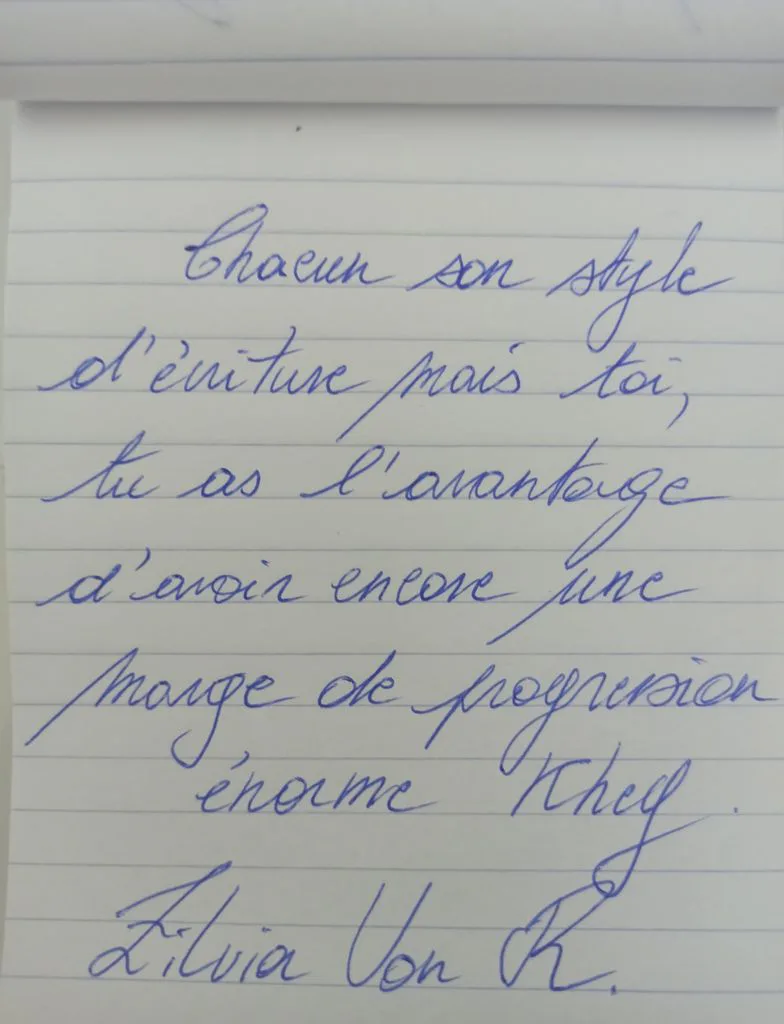 Chacun son style
d'écriture mais toi,
tu as l'avantage
d'avoir encore une
marge de progression
énorme Kheg.
Zilvia Von K.